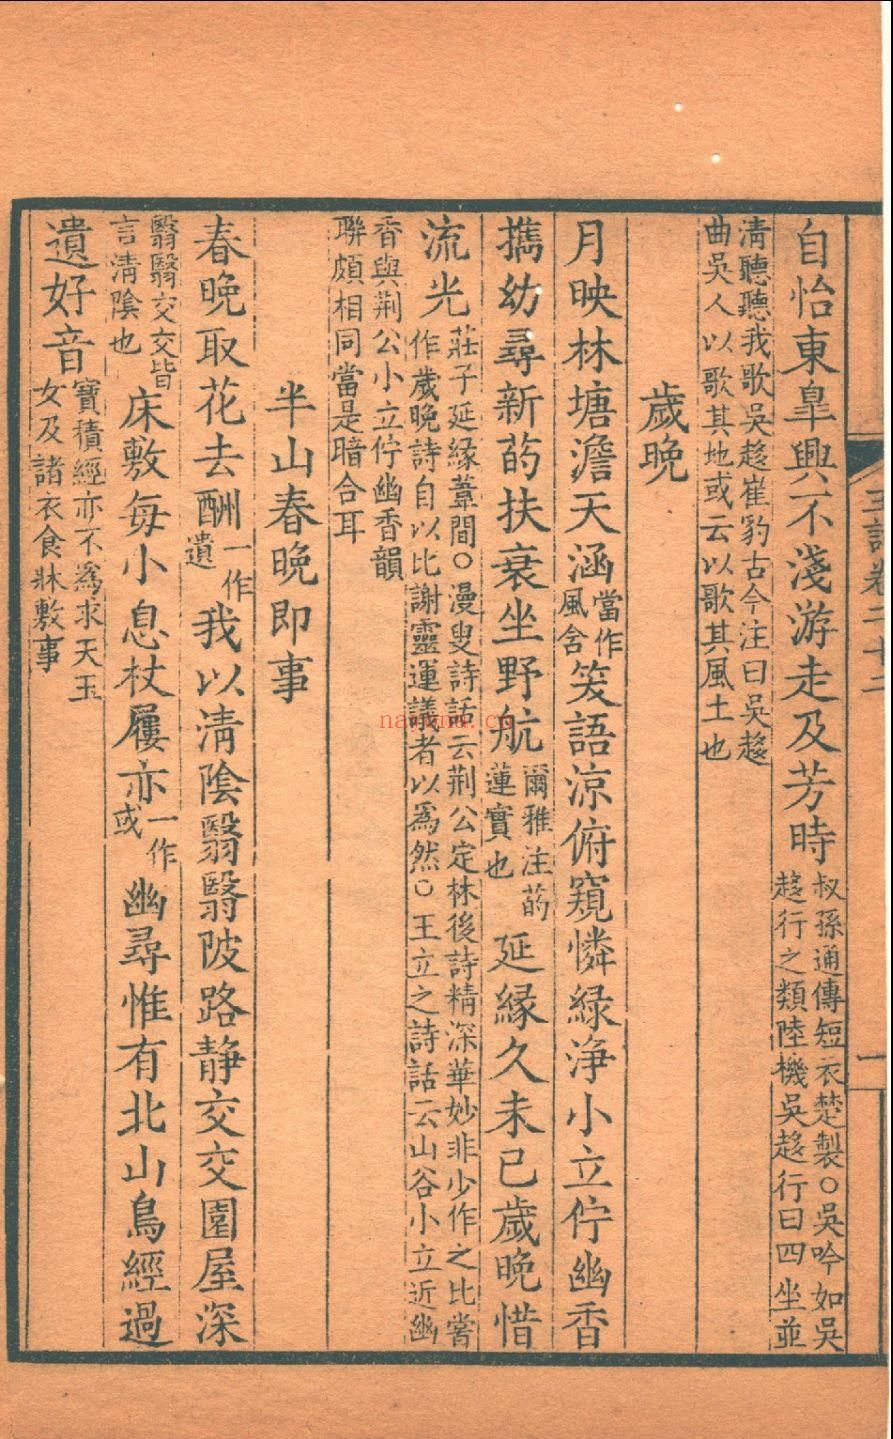 自怡東臯興不淺游走及芳時叔孫通傳短衣楚製○吳吟如吳趍行之類陸機吳趍行曰四坐並
清聽聽我歌吳趍崔豹古今注曰吳趍曲吳人以歌其地或云以歌其風土也
歲晚
月映林塘澹天涵當作風含笑語涼俯窺憐綠浄小立佇幽香
攜幼尋新菂扶衰坐野航爾雅注菂蓮實也延緣久未已歲晚惜
流光莊子延緣葦間○漫叟詩話云荆公定林後詩精深華妙非少作之比嘗作歲晚詩自以比謝靈運議者以爲然○王立之詩話云山谷小立近幽
香與荆公小立佇幽香韻聯頗相同當是暗合耳
半山春晚即事
春晚取花去酬一作遺我以清陰翳翳陂路靜交交園屋深
翳翳交交皆言清陰也床敷每小息杖屨亦一作或幽尋惟有北山鳥經過
遺好音寶積經亦不爲求天玉女及諸衣食牀敷事
王詩卷二十二
一